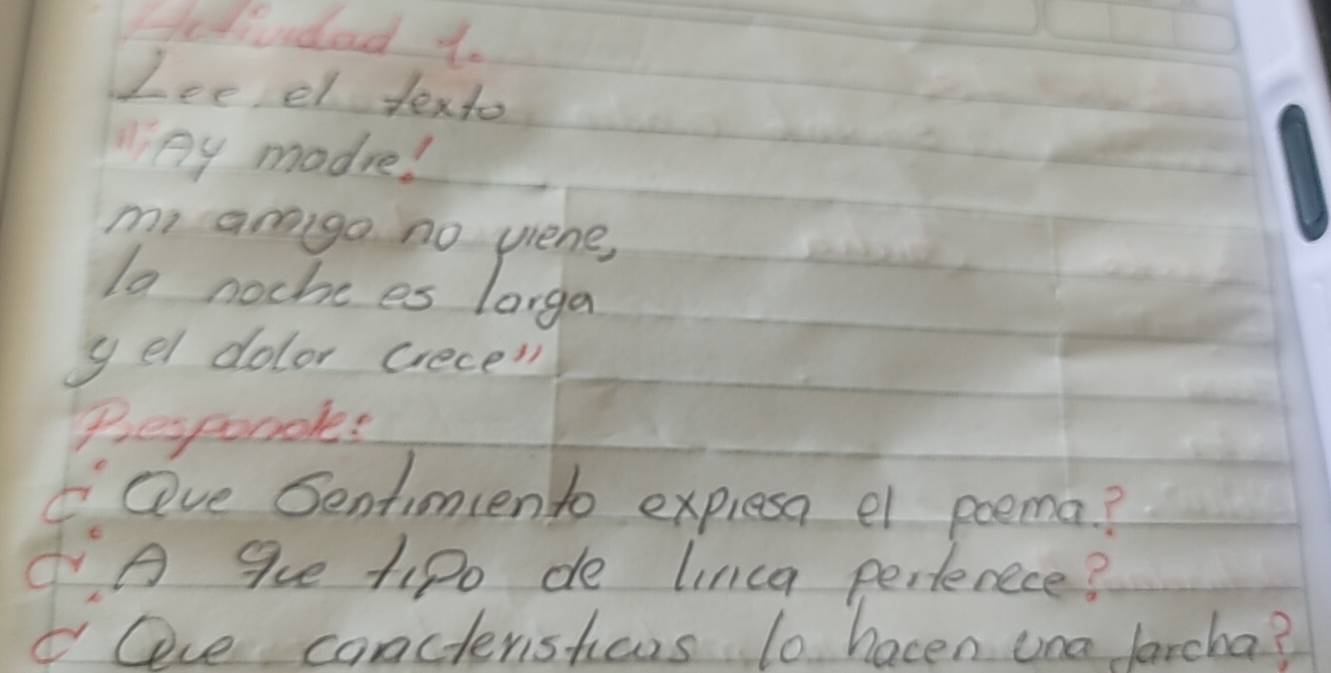 Actividad 1.
Lee el texto
"¡Ay madre!
mi amigo no viene,
la noche es larga
y el dolor crece"
Responde:
¿Que Sentimiento expresa el poema?
¿A que tipo de lirica pertenece?
¿Que caracteristicas lo hacen una Jarcha?